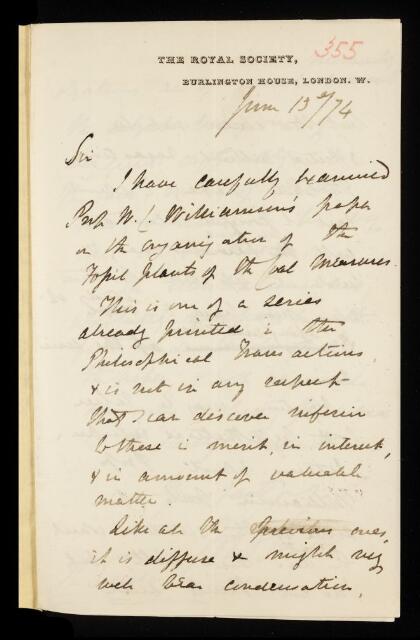 355
THE ROYAL SOCIETY,
BURLINGTON HOUSE, LONDON. W.
June 13th/74
Sir
I have carefully examined
Prof W. C. Williamson's paper
on the organization of the
Fossil plants of the Coal Measures.
This is one of a series
already printed in the
Philosophical Transactions,
& is not in any respect
that I can discover inferior
to these in merit, in interest,
& in amount of valuable
matter.
Like all the previous ones,
it is diffuse & might very
well bear condensation,